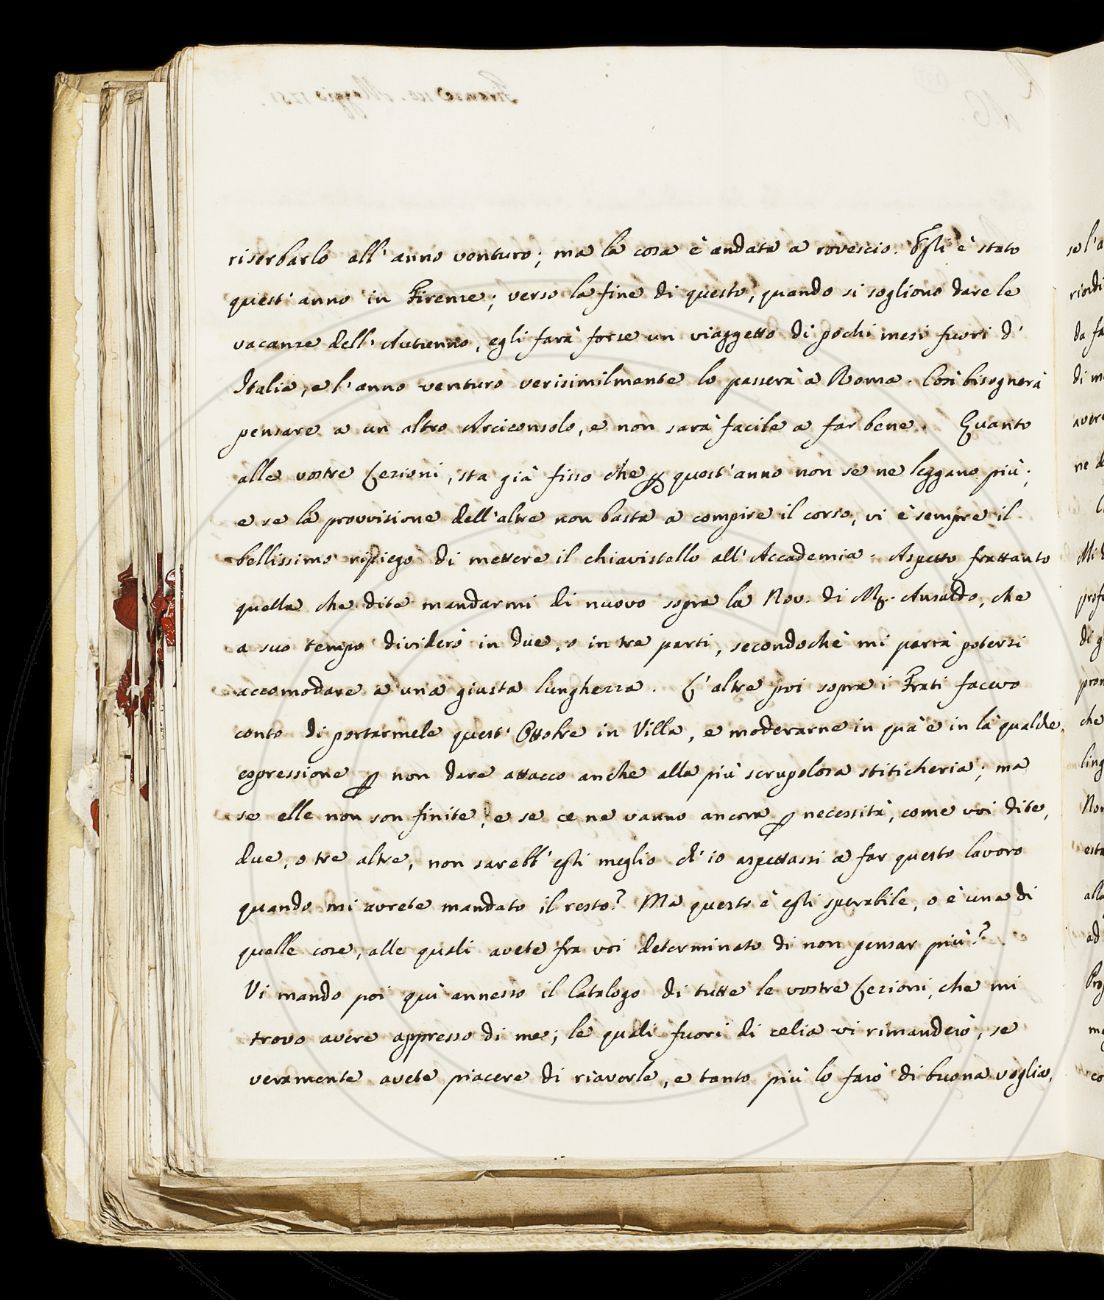 riserbarlo all'anno venturo; ma la cosa è andata a rovescio. Egli è stato
quest'anno in Firenze; verso la fine di questo, quando si sogliono dare le
vacanze dell'Autunno, egli farà forse un viaggetto di pochi mesi fuori d'
Italia, e l'anno venturo verisimilmente lo passerà a Roma. Così bisognerà
pensare a un altro Arciconsolo, e non sarà facile a far bene. Quanto
alle vostre Lezioni, sta già fisso che ꝑ quest'anno non se ne leggano più;
e se la provvisione dell'altre non basta a compire il corso, vi è sempre il
bellissimo ripiego di mettere il chiavistello all'Accademia. Aspetto frattanto
quella che dite mandarmi di nuovo sopra la Nov. di Mr. Ansaldo, che
a suo tempo dividerò in due, o in tre parti, secondochè mi parrà potersi
accomodare a una giusta lunghezza. L'altre poi sopra i Frati facevo
conto di portarmele quest'Ottobre in Villa, e moderarne in quà e in là qualche
espressione ꝑ non dare attacco anche alla più scrupolosa stiticheria; ma
se elle non son finite, e se ce ne vanno ancora ꝑ necessità, come voi dite,
due, o tre altre, non sarebb'egli meglio ch'io aspettassi a far questo lavoro
quando mi avrete mandato il resto? Ma questo è egli sperabile, o è una di
quelle cose, alle quali avete fra voi determinato di non pensar più?
Vi mando poi quì annesso il Catalogo di tutte le vostre Lezioni, che mi
trovo avere appresso di me; le quali fuori di celia vi rimanderò, se
veramente avete piacere di riaverle, e tanto più lo farò di buona voglia,